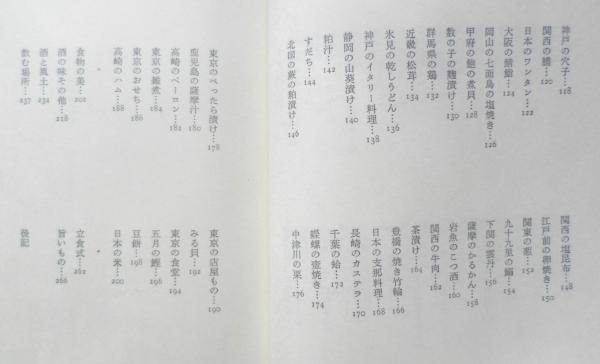 神戸の穴子…118
関西の鱧…120
日本のワンタン…122
大阪の鯖鮨…124
岡山の七面鳥の塩焼き…126
甲府の鮑の煮貝…128
数の子の麹漬け…130
群馬県の鶏…132
近畿の松茸…134
氷見の乾しうどん…136
神戸のイタリー料理…138
静岡の山葵漬け…140
粕汁…142
すだち…144
北国の蕨の粕漬け…146
関西の塩昆布…148
江戸前の卵焼き…150
関東の葱…152
九十九里の鰯…154
下関の雲丹…156
薩摩のかるかん…158
岩魚のこつ酒…160
関西の牛肉…162
茶漬け…164
豊橋の焼き竹輪…166
日本の支那料理…168
長崎のカステラ…170
千葉の蛤…172
蠑螺の壺焼き…174
中津川の栗…176
東京のべったら漬け…178
鹿児島の薩摩汁…180
高崎のベーコン…182
東京の雑煮…184
東京のおせち…186
高崎のハム…188
東京の店屋もの…190
みる貝…192
東京の食堂…194
五月の鰹…196
豆餅…198
日本の米…200
*
食物の美…202
酒の味その他…218
酒と風土…234
飲む場所…237
*
立食式…262
旨いもの…266
後記